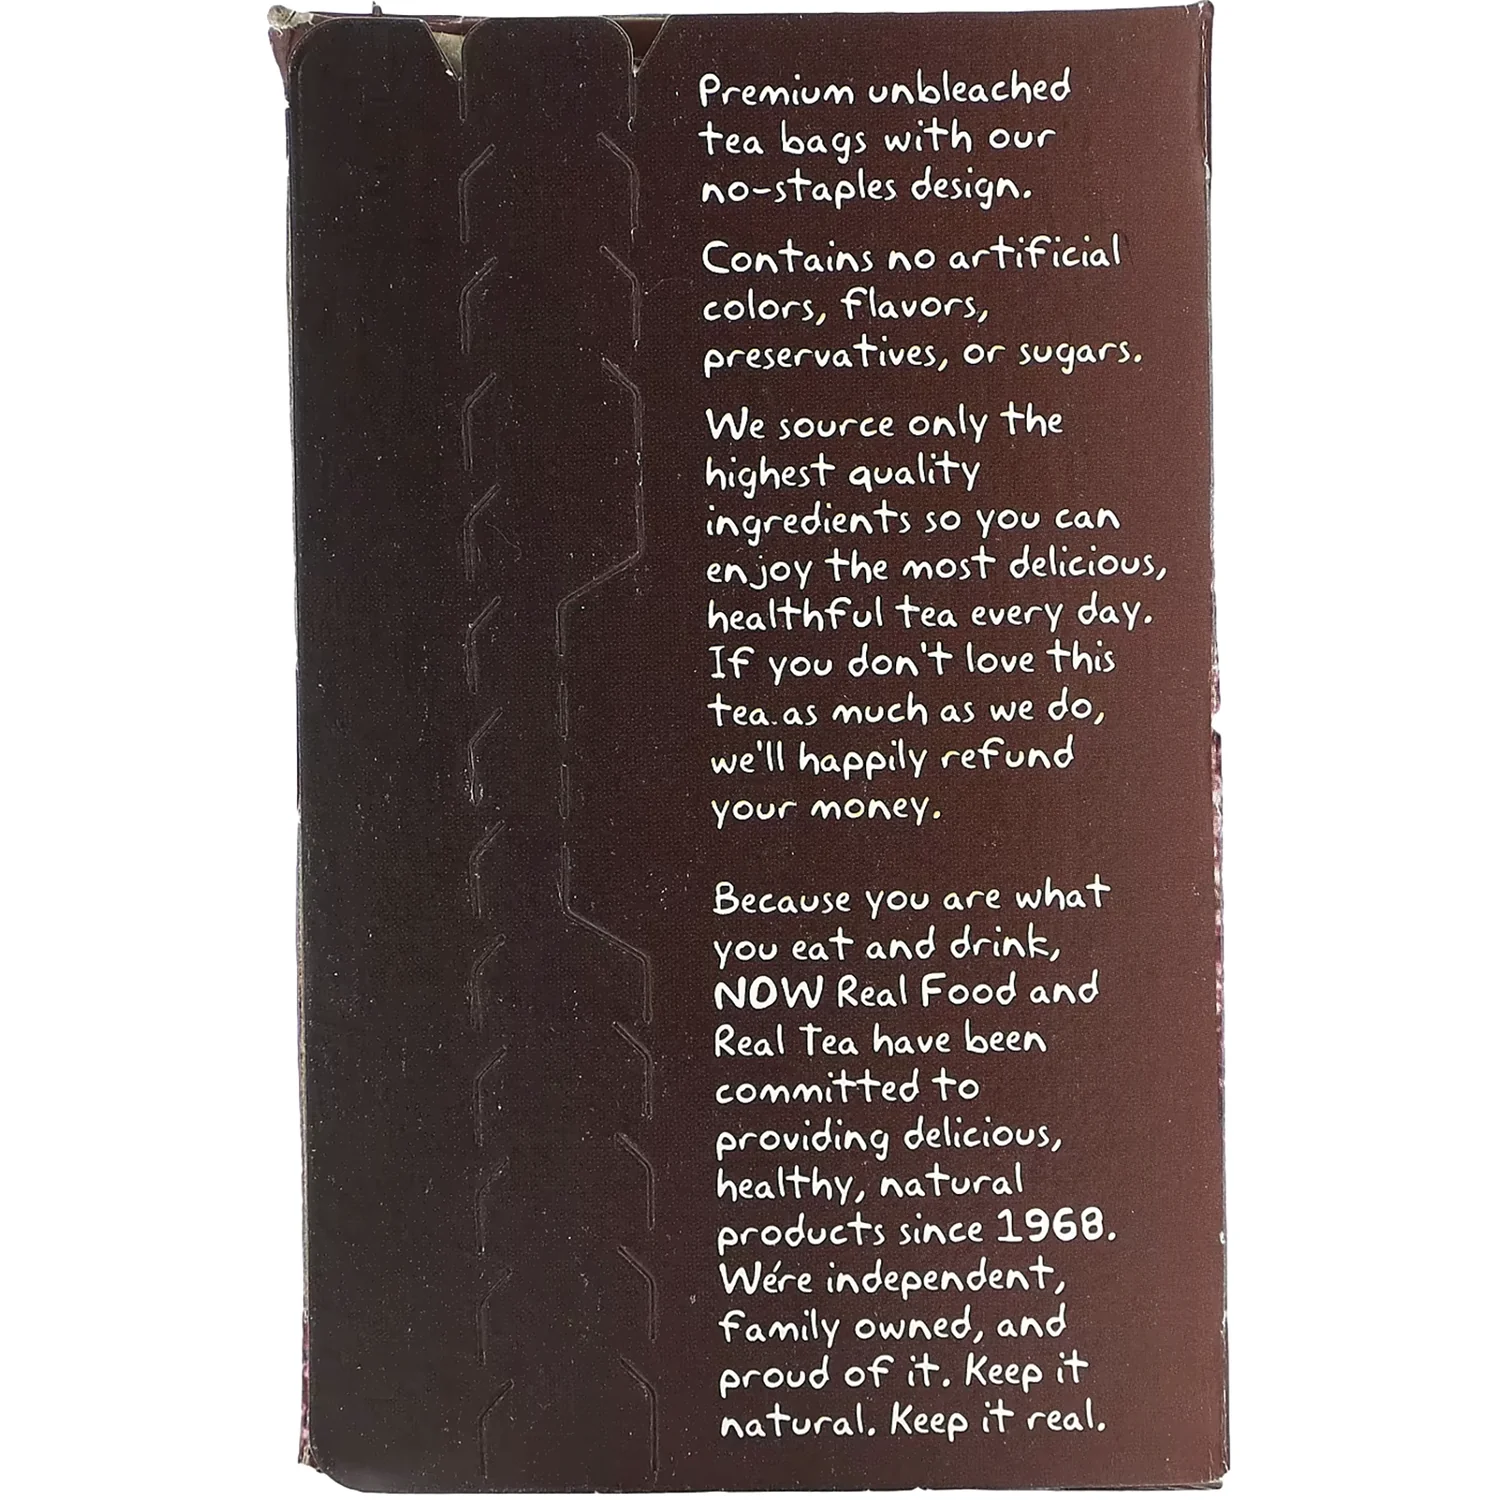 Premium unbleached
tea bags with our
no-staples design.
Contains no artificial
colors, flavors,
preservatives, or sugars.
We source only the
highest quality
ingredients so you can
enjoy the most delicious,
healthful tea every day.
If you don't love this
tea as much as we do,
we'll happily refund
your money.
Because you are what
you eat and drink,
NOW Real Food and
Real Tea have been
committed to
providing delicious,
healthy, natural
products since 1968.
We're independent,
family owned, and
proud of it. Keep it
natural. Keep it real.